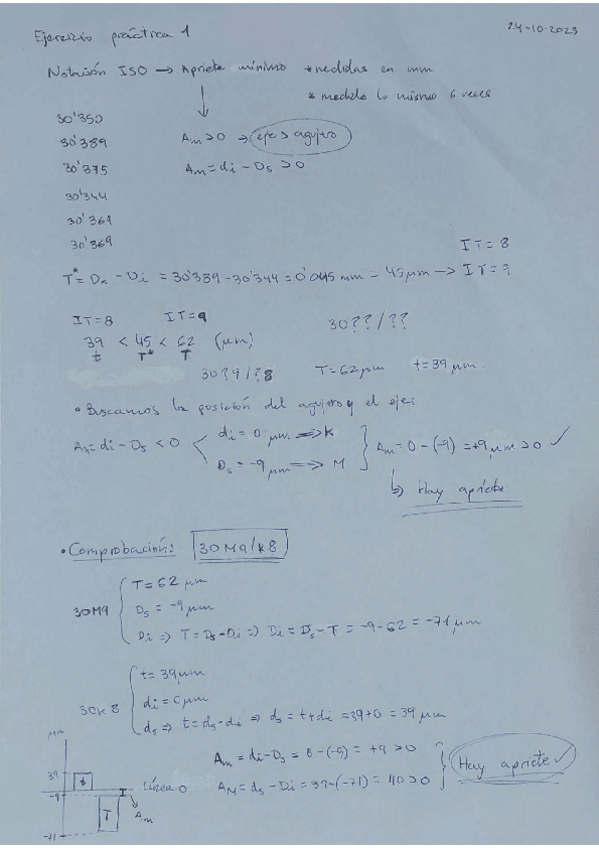 Ejercicio práctica 1
24-10-2023
Notación ISO → Apriete mínimo * medidas en mm
* medida lo mismo 6 veces
30'350
30'389
30'375
30'344
30'369
30'369
Am > 0 ⇒ eje > agujero
Am = di - Ds > 0
IT = 8
T* = Ds - Di = 30'389 - 30'344 = 0'045 mm = 45 μm → IT = ?
IT=8 IT=9
39 < 45 < 62 (μm)
t T* T
30??/??
30?9/?8 T=62μm t=39μm
• Buscamos la posición del agujero y el eje:
Am = di - Ds < 0
di = 0 μm. ⇒ K
Ds = -9 μm ⇒ M
Am = 0 - (-9) = +9 μm > 0 ✓
↳ Hay apriete
• Comprobación: 30M9/k8
30M9
T = 62 μm
Ds = -9 μm
Di ⇒ T = Ds - Di ⇒ Di = Ds - T = -9 - 62 = -71 μm
30k8
t = 39μm
di = 0 μm
ds ⇒ t = ds - di ⇒ ds = t + di = 39 + 0 = 39 μm
Am = di - Ds = 0 - (-9) = +9 > 0
AM = ds - Di = 39 - (-71) = 110 > 0
Hay apriete ✓
μm
39
-9
-71
t
T
I
Línea 0
Am